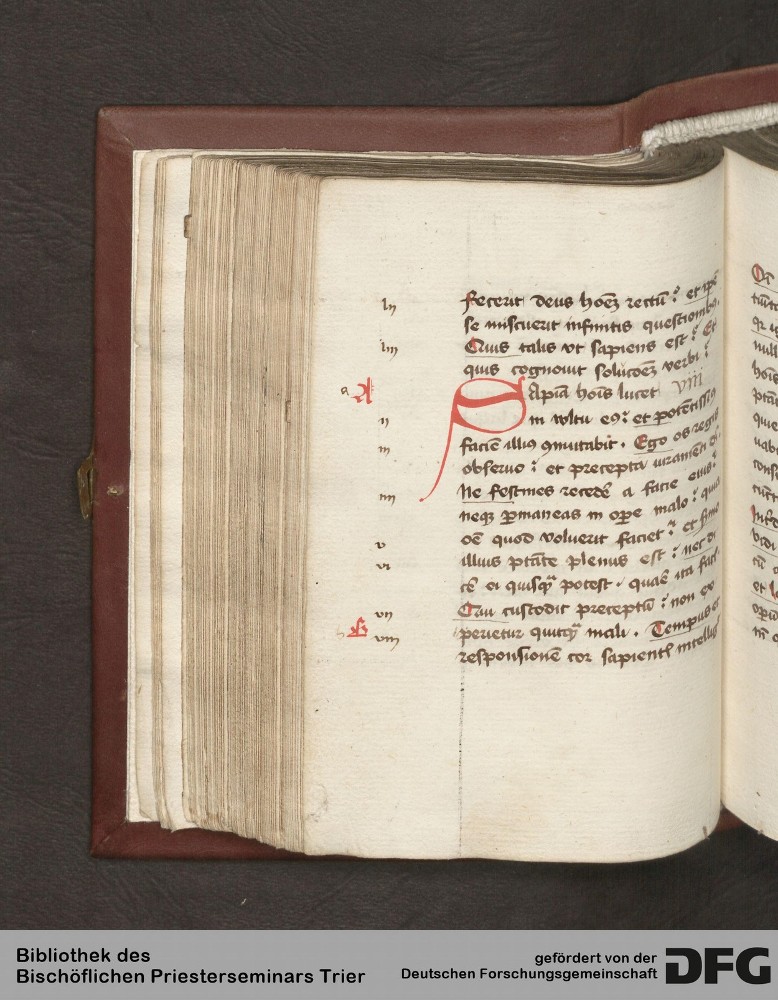 fecerit deus hoēz rectū : et ipē
se miscuerit infinitis questionibꝰ.
Quis talis vt sapiens est : Et
quis cognouit solucōēz verbi :
a A
Sapīa hoīs lucet VIII
in wltu eꝰ : et potentissimꝰ
faciē illiꝰ ꝯmutabit . Ego os regis
obseruo : et precepta iuramēti
Ne festines recedē a facie eius :
neqꝫ ꝑmaneas in oꝑe malo : quia
oē quod voluerit faciet : et sermo
illius ptāte plenus est : nec di
cē ei quisqȝ potest . quaē ita facis
Qui custodit preceptū : non ex
perietur quicqȝ mali . Tempus et
responsionē cor sapientis intelligit
ln
lm
n
m
mi
v
vi
vn
b B
vm
Bibliothek des
Bischöflichen Priesterseminars Trier
gefördert von der
Deutschen Forschungsgemeinschaft
DFG